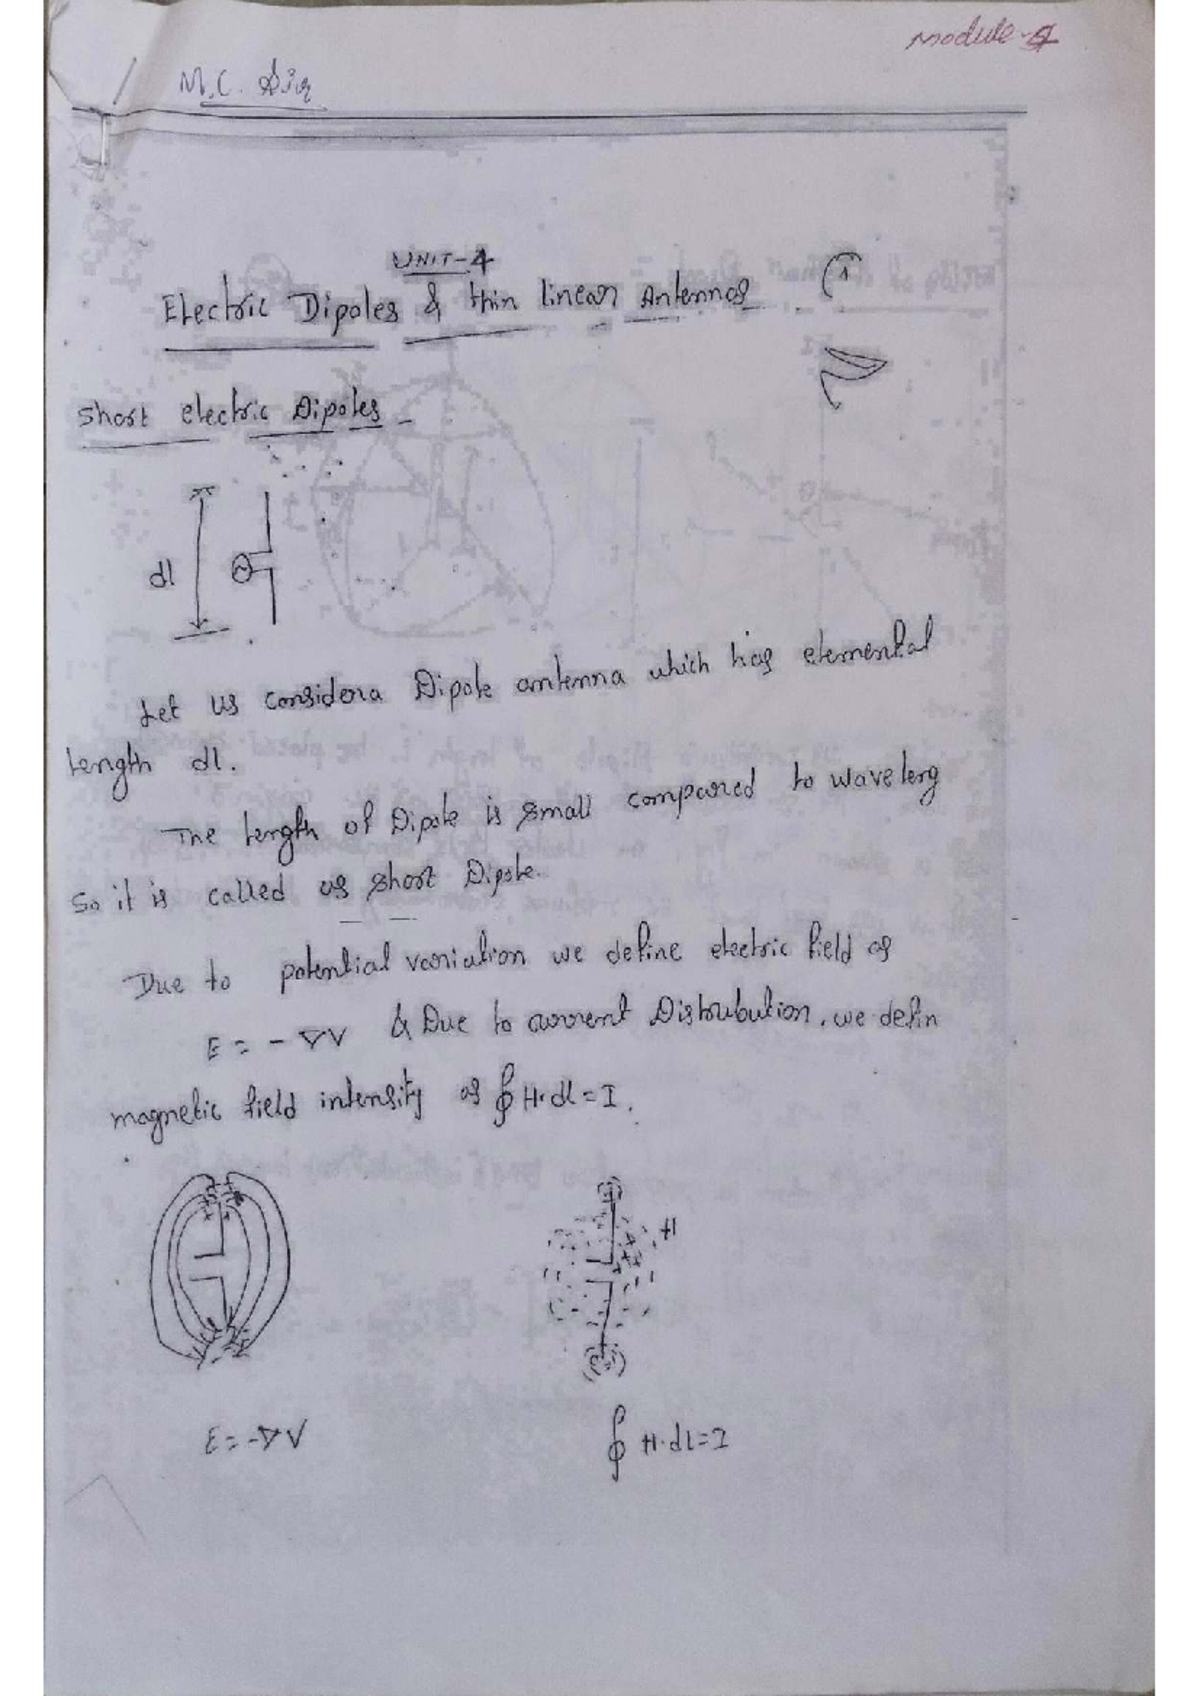 Module-4
M.C. Sir
UNIT-4
Electric Dipoles & thin linear Antennas
(1)
Short electric Dipoles -
dl
Let us consider a Dipole antenna which has elemental
length dl.
The length of Dipole is small compared to waveleng
So it is called as short Dipole.
Due to potential variation we define electric field as
E = - ∇V & Due to current Distribution, we defin
magnetic field intensity as ∮ H·dl = I.
H
E = -∇V
∮ H·dl = I